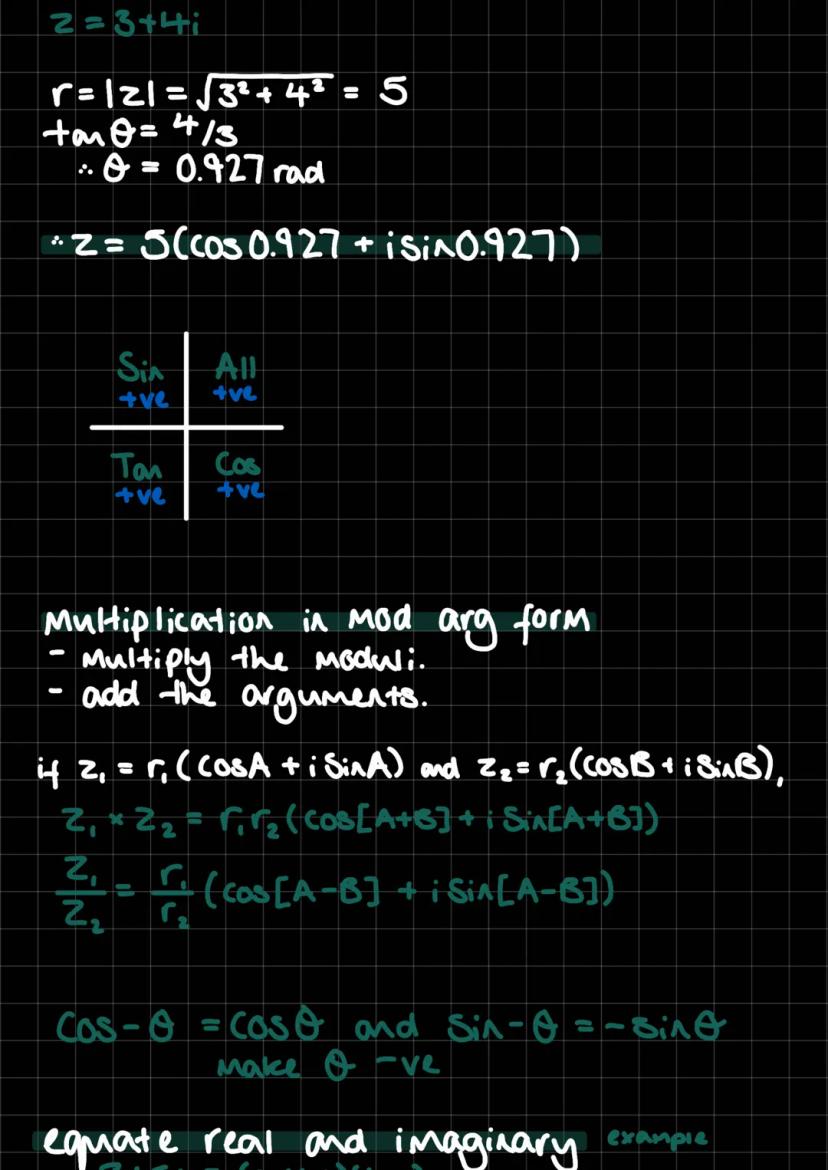 z = 3+4i
r = |z| = √(3² + 4²) = 5
tan θ = 4/3
∴ θ = 0.927 rad
∴ z = 5(cos 0.927 + i sin 0.927)
Sin All
+ve +ve
Tan Cos
+ve +ve
Multiplication in mod arg form
- multiply the moduli.
- add the arguments.
if z₁ = r₁(cosA + i sinA) and z₂ = r₂(cosB + i sinB),
z₁ × z₂ = r₁r₂(cos[A+B] + i sin[A+B])
z₁/z₂ = r₁/r₂ (cos[A-B] + i sin[A-B])
cos-θ = cosθ and sin-θ = -sinθ
make θ -ve
equate real and imaginary example